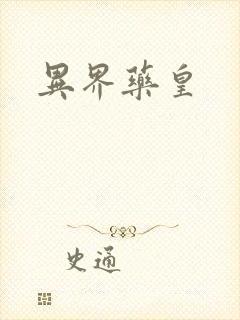 異界藥皇
史通